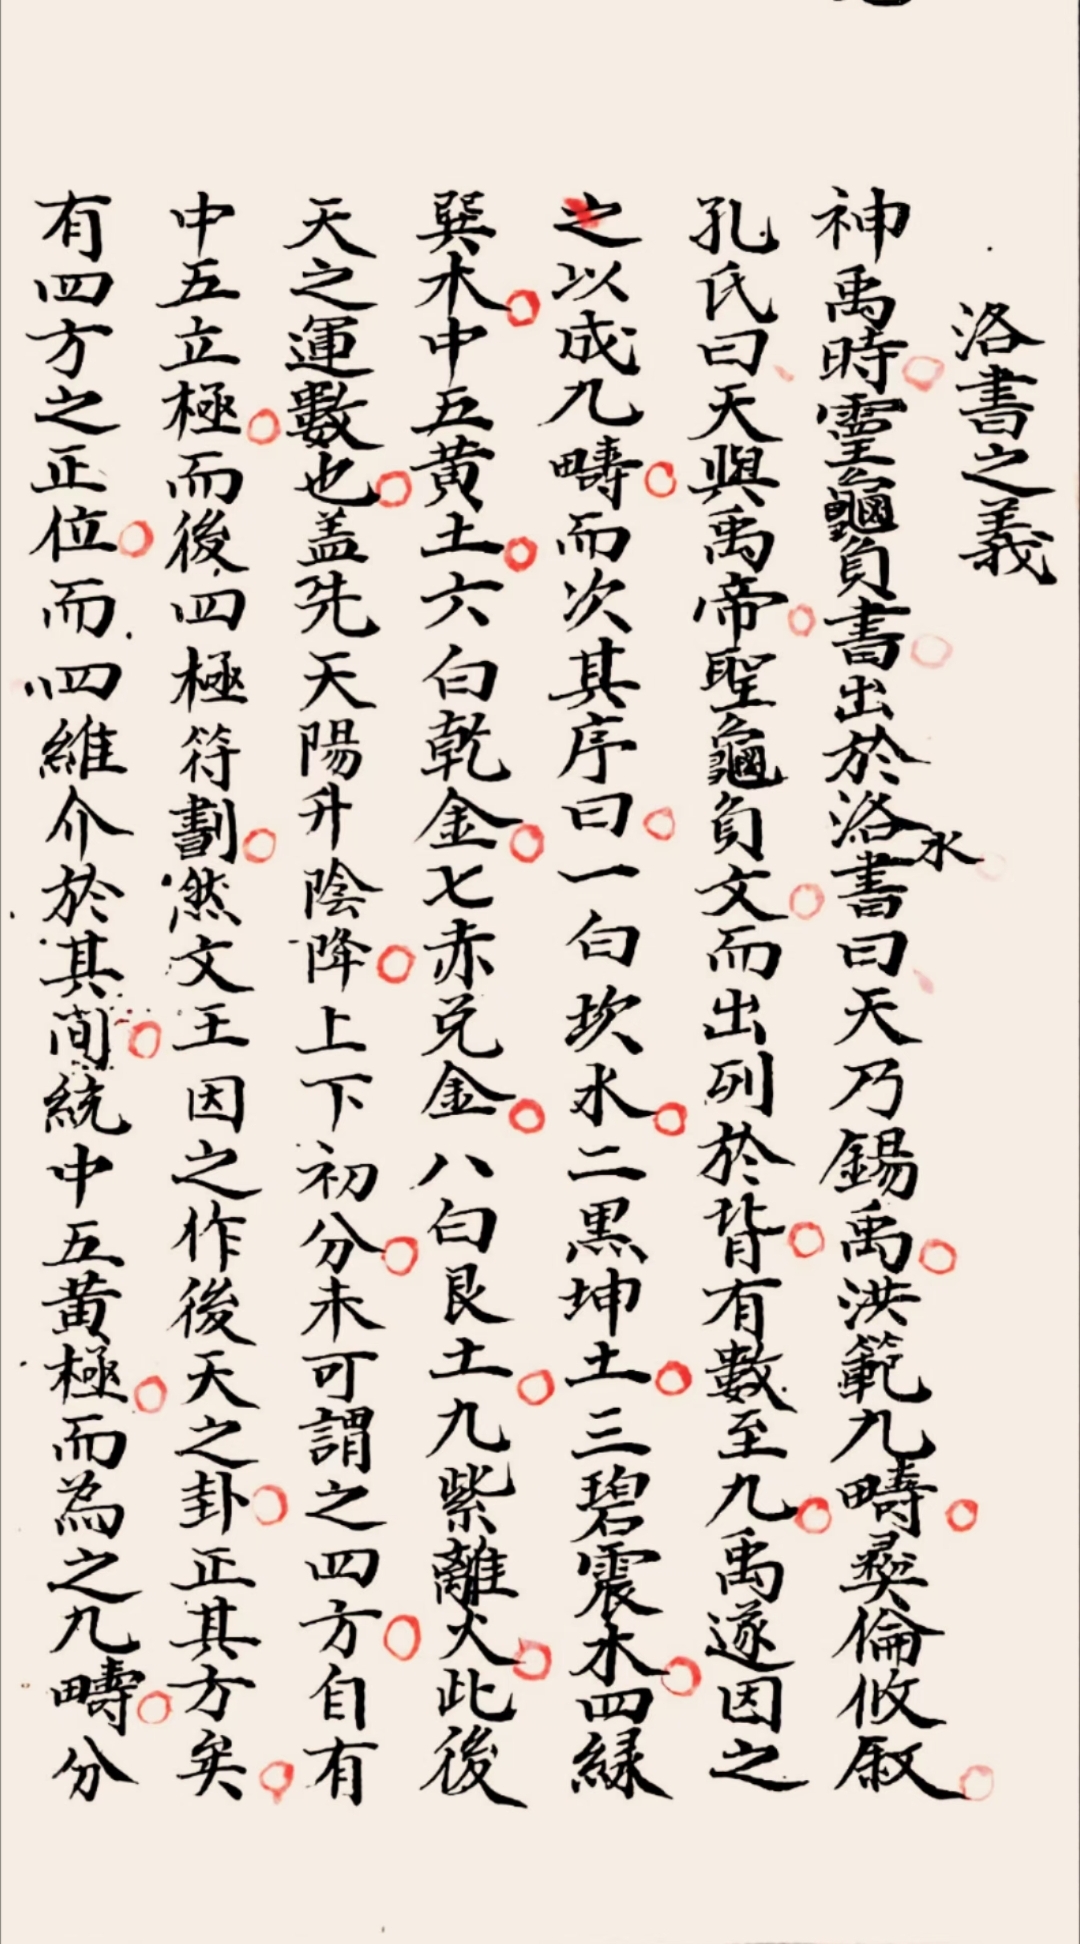 洛書之義
神禹時靈龜負書出於洛水書曰天乃錫禹洪範九疇彝倫攸叙
孔氏曰天與禹帝聖龜負文而出列於背有數至九禹遂因之
之以成九疇而次其序曰一白坎水二黒坤土三碧震木四緑
巽木中五黄土六白乾金七赤兌金八白艮土九紫離火此後
天之運數也盖先天陽升陰降上下初分未可謂之四方自有
中五立極而後四極符劃然文王因之作後天之卦正其方矣
有四方之正位而四維介於其間統中五黄極而為之九疇分